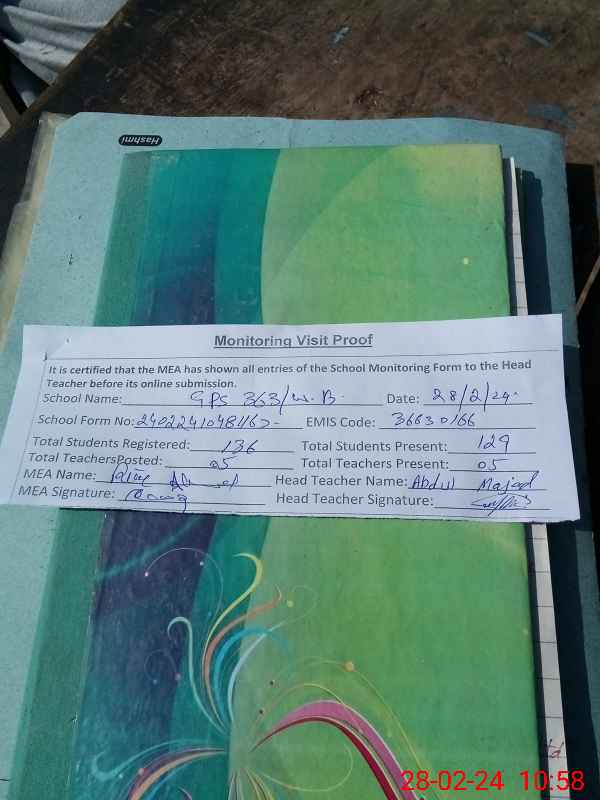 Hashmi
Monitoring Visit Proof
It is certified that the MEA has shown all entries of the School Monitoring Form to the Head
Teacher before its online submission.
School Name: GPS 363/W.B. Date: 28/2/24.
School Form No: EMIS Code: 36630166
Total Students Registered: 136 Total Students Present: 129
Total TeachersPosted: 05 Total Teachers Present: 05
MEA Name: Head Teacher Name: Abdul Majeed
MEA Signature: Head Teacher Signature:
28-02-24 10:58